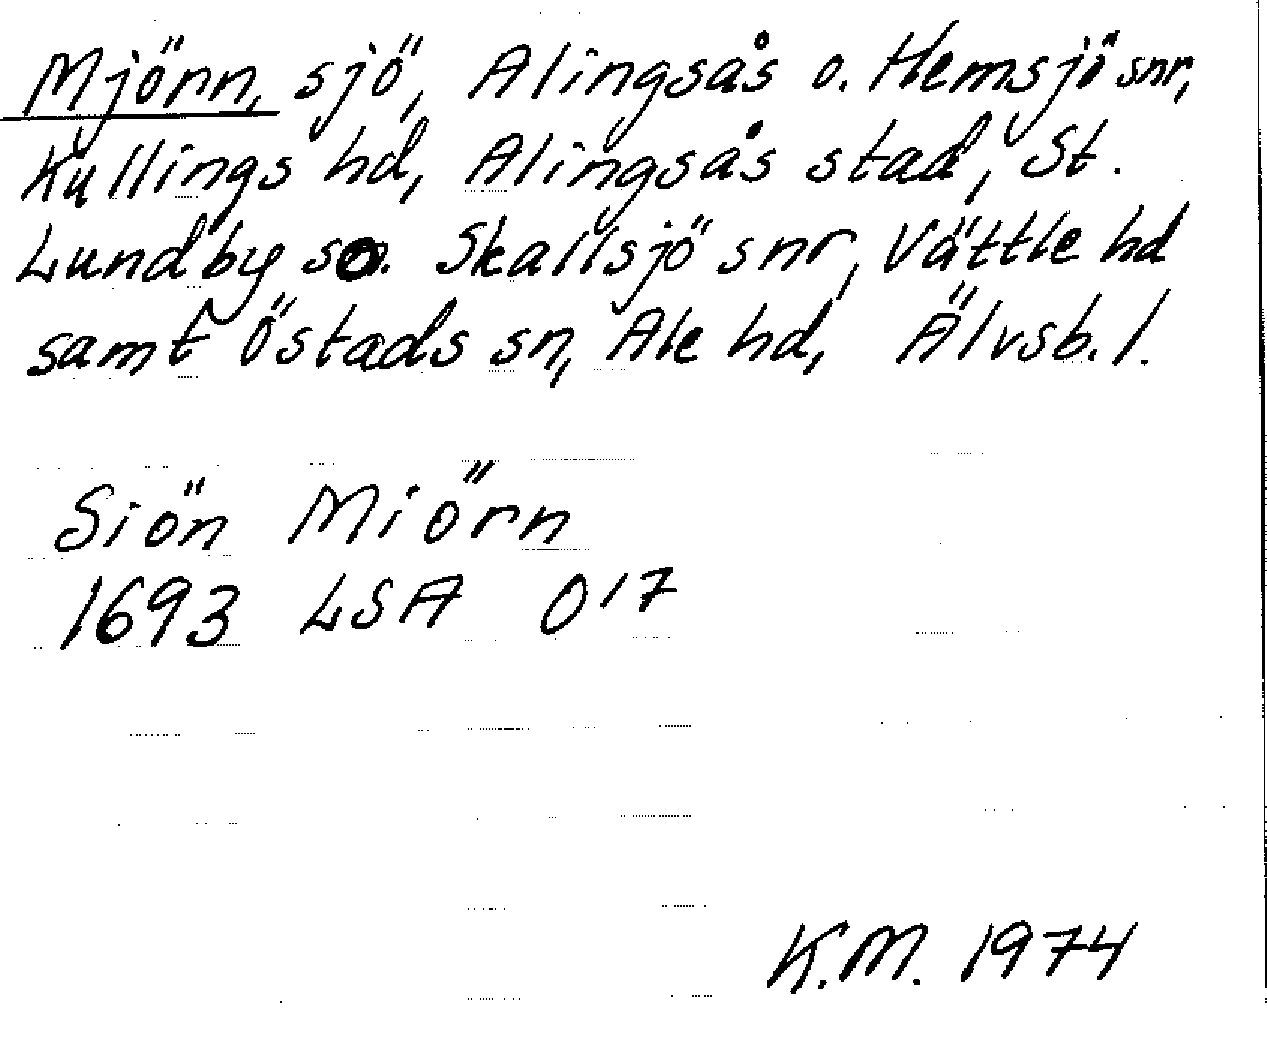 Mjörn, sjö, Alingsås o. Hemsjö snr,
Kullings hd, Alingsås stad, St.
Lundby o. Skallsjö snr, Vättle hd
samt Östads sn, Ale hd, Älvsb. l.
Siön Miörn
1693 LSA O17
K.M. 1974